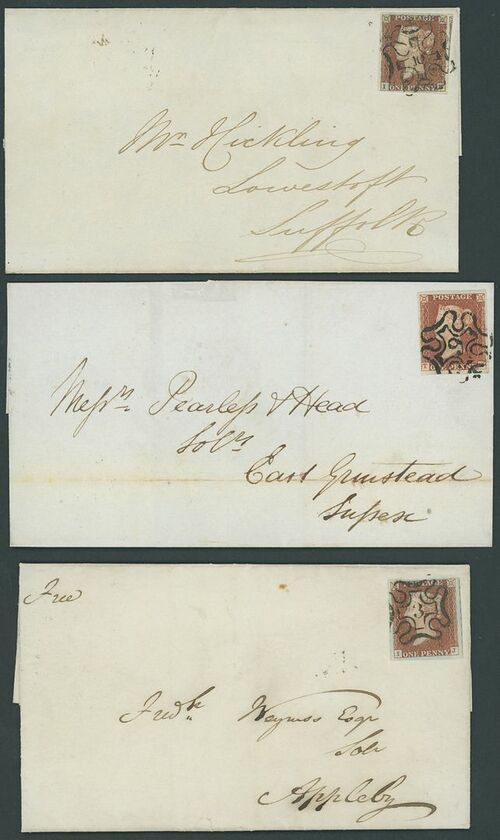 POSTAGE
ONE PENNY
Mr Hickling
Lowestoft
Suffolk
POSTAGE
Messrs Pearless & Head
Solrs
East Grinstead
Sussex
Free
POSTAGE
3
ONE PENNY
Fredk Esqr
Solr
Appleby